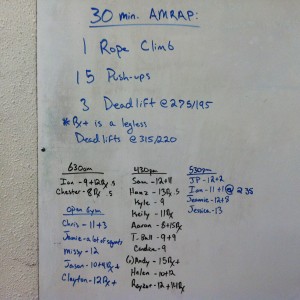 30 min. AMRAP:
1 Rope Climb
15 Push-ups
3 Deadlift @ 275/195
*Rx+ is a legless
Deadlifts @ 315/220
630am
Ian - 9+12Rx.5
Chester - 8Rx.5
Open Gym
Chris - 11+3
Jamie - a lot of squats
missy - 12
Jason - 10+4Rx+
Clayton - 12Rx+
430pm
Sam - 12+11
Hanz - 13Rx.5
Kyle - 9
Kelly - 11Rx
Aaron - 8+15Rx
T-Ball - 9+9
Camden - 9
Andy - 15Rx+
Halen - 10+12
530pm
JP - 12+2
Ian - 11+1 @ 235
Jeannie - 12+8
Jessica - 13